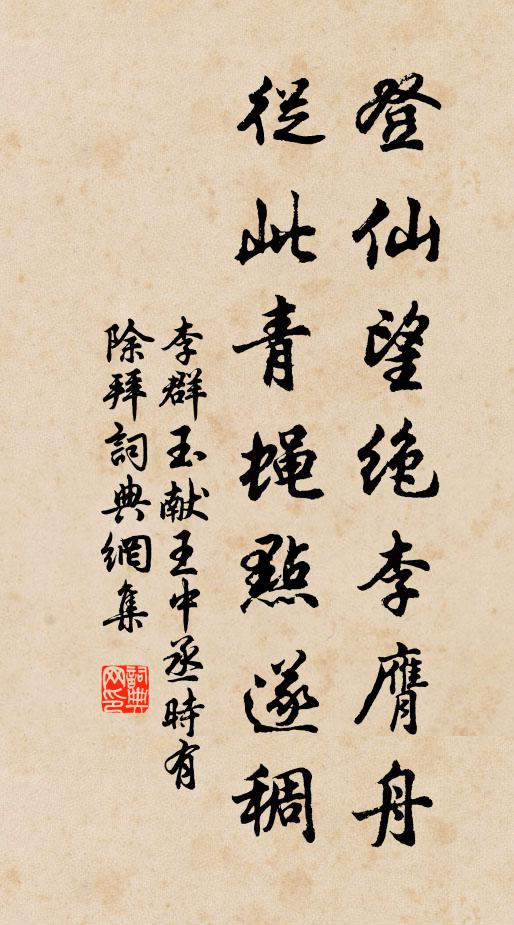 登仙望绝李膺舟
從此青蝇點遂稠
李群玉献王中丞時有
除拜詞典網集
詞典网印